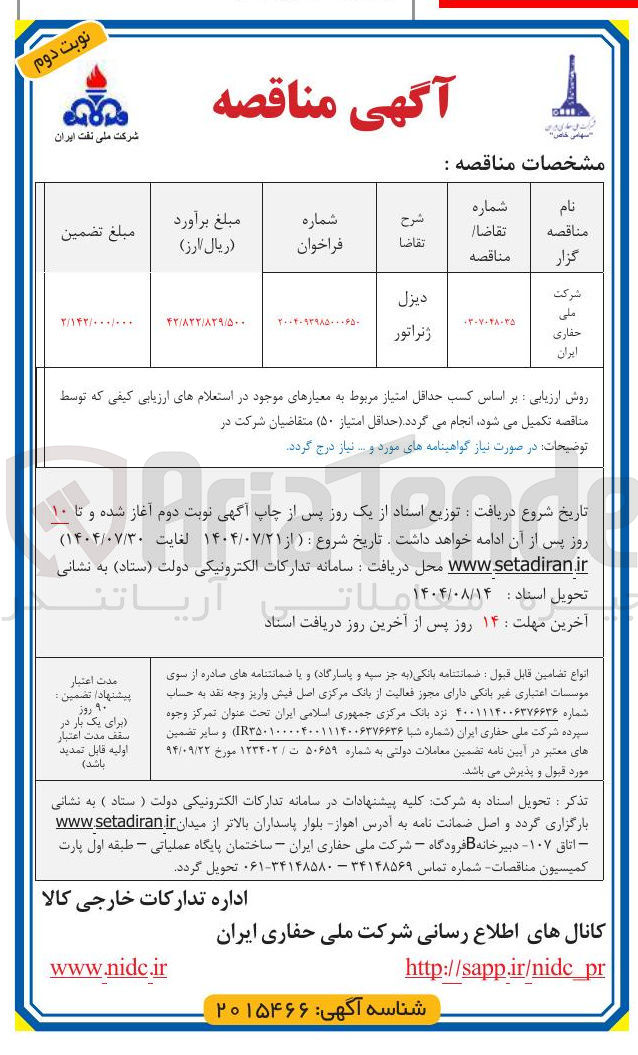 نوبت دوم
آگهی مناقصه
شرکت ملی نفت ایران
شرکت ملی حفاری ایران
"سهامی خاص"
مشخصات مناقصه :
نام مناقصه گزار
شماره تقاضا/ مناقصه
شرح تقاضا
شماره فراخوان
مبلغ برآورد (ریال/ارز)
مبلغ تضمین
شرکت ملی حفاری ایران
۰۳۰۷۰۴۸۰۳۵
دیزل ژنراتور
۲۰۰۴۰۹۳۹۸۵۰۰۰۶۵۰
۴۲/۸۲۲/۸۲۹/۵۰۰
۲/۱۴۲/۰۰۰/۰۰۰
روش ارزیابی : بر اساس کسب حداقل امتیاز مربوط به معیارهای موجود در استعلام های ارزیابی کیفی که توسط
مناقصه تکمیل می شود، انجام می گردد.(حداقل امتیاز ۵۰) متقاضیان شرکت در
توضیحات: در صورت نیاز گواهینامه های مورد و ... نیاز درج گردد.
تاریخ شروع دریافت : توزیع اسناد از یک روز پس از چاپ آگهی نوبت دوم آغاز شده و تا ۱۰
روز پس از آن ادامه خواهد داشت . تاریخ شروع : ( از۱۴۰۴/۰۷/۲۱ لغایت ۱۴۰۴/۰۷/۳۰)
www.setadiran.ir محل دریافت : سامانه تدارکات الکترونیکی دولت (ستاد) به نشانی
تحویل اسناد : ۱۴۰۴/۰۸/۱۴
آخرین مهلت : ۱۴ روز پس از آخرین روز دریافت اسناد
AriaTender
آریاتندر
انواع تضامین قابل قبول : ضمانتنامه بانکی(به جز سپه و پاسارگاد) و یا ضمانتنامه های صادره از سوی
موسسات اعتباری غیر بانکی دارای مجوز فعالیت از بانک مرکزی اصل فیش واریز وجه نقد به حساب
شماره ۴۰۰۱۱۱۴۰۰۶۳۷۶۶۳۶ نزد بانک مرکزی جمهوری اسلامی ایران تحت عنوان تمرکز وجوه
سپرده شرکت ملی حفاری ایران (شماره شبا IR۳۵۰۱۰۰۰۰۴۰۰۱۱۱۴۰۰۶۳۷۶۶۳۶) و سایر تضمین
های معتبر در آیین نامه تضمین معاملات دولتی به شماره ۵۰۶۵۹ ت / ۱۲۳۴۰۲ مورخ ۹۴/۰۹/۲۲
مورد قبول و پذیرش می باشد.
مدت اعتبار
پیشنهاد/ تضمین :
۹۰ روز
(برای یک بار در
سقف مدت اعتبار
اولیه قابل تمدید
باشد)
تذکر : تحویل اسناد به شرکت: کلیه پیشنهادات در سامانه تدارکات الکترونیکی دولت ( ستاد ) به نشانی
بارگزاری گردد و اصل ضمانت نامه به آدرس اهواز- بلوار پاسداران بالاتر از میدانwww.setadiran.ir
– اتاق ۱۰۷- دبیرخانهBفرودگاه – شرکت ملی حفاری ایران – ساختمان پایگاه عملیاتی – طبقه اول پارت
کمیسیون مناقصات- شماره تماس ۳۴۱۴۸۵۶۹ – ۳۴۱۴۸۵۸۰-۰۶۱ تحویل گردد.
اداره تدارکات خارجی کالا
کانال های اطلاع رسانی شرکت ملی حفاری ایران
http://sapp.ir/nidc_pr
www.nidc.ir
شناسه آگهی: ۲۰۱۵۴۶۶